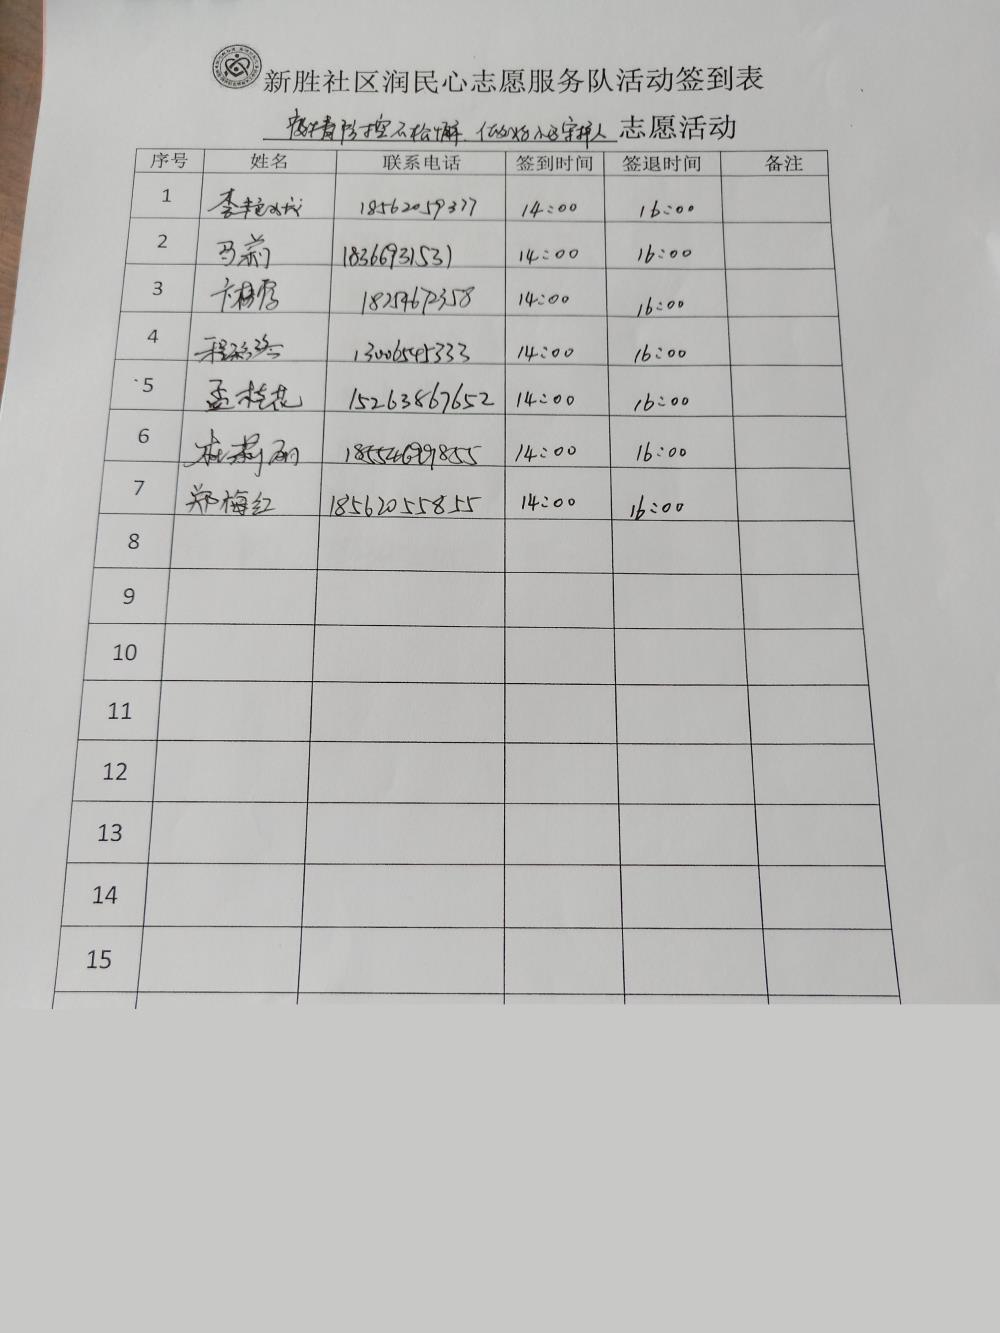 新胜社区润民心志愿服务队活动签到表
疫情防控不松懈、 志愿活动
序号 姓名 联系电话 签到时间 签退时间 备注
1 18562059377 14:00 16:00
2 马莉 18366931531 14:00 16:00
3 18254672358 14:00 16:00
4 13006545333 14:00 16:00
5 孟桂花 15263867652 14:00 16:00
6 杜莉丽 18554699855 14:00 16:00
7 郑梅红 18562055855 14:00 16:00
8
9
10
11
12
13
14
15